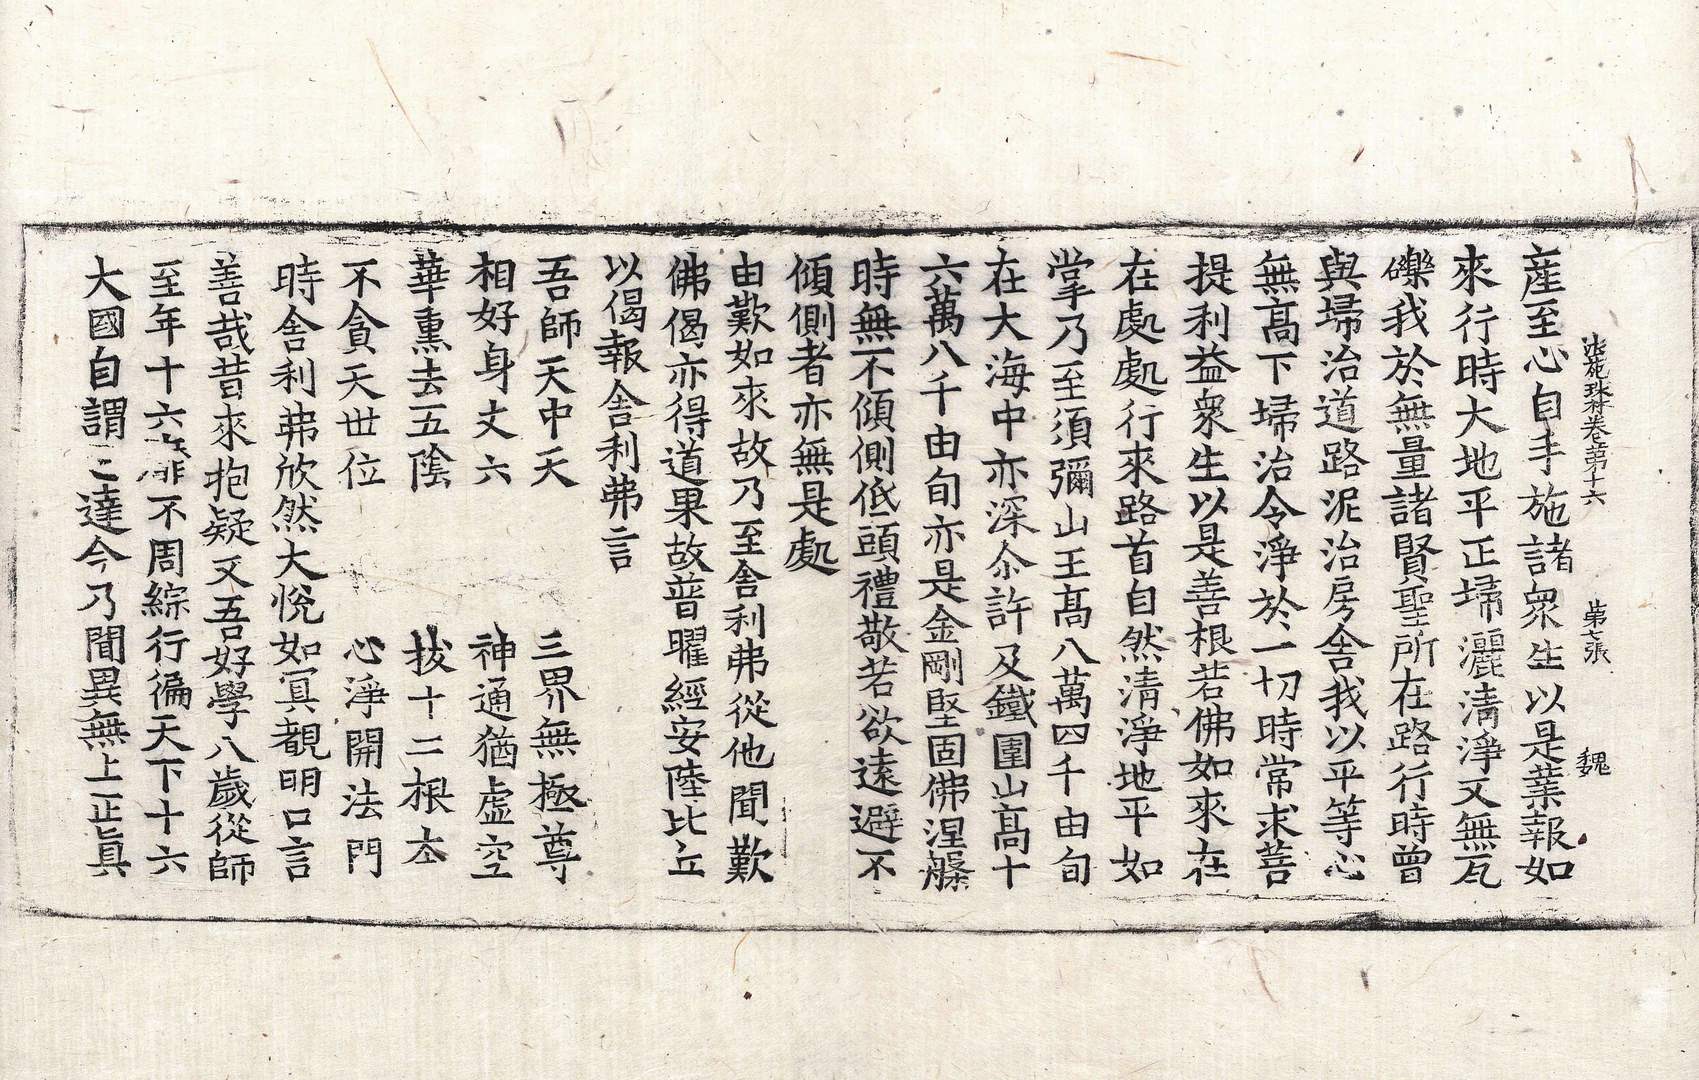 法苑珠林卷第十六 第七張 魏
産至心自手施諸衆生以是業報如
來行時大地平正埽灑清淨又無瓦
礫我於無量諸賢聖所在路行時曾
與埽治道路泥治房舍我以平等心
無高下埽治令淨於一切時常求菩
提利益衆生以是善根若佛如來在
在處處行來路首自然清淨地平如
掌乃至須彌山王高八萬四千由旬
在大海中亦深尒許及鐵圍山高十
六萬八千由旬亦是金剛堅固佛涅槃
時無不傾側低頭禮敬若欲遠避不
傾側者亦無是處
由歎如來故乃至舍利弗從他聞歎
佛偈亦得道果故普曜經安陸比丘
以偈報舍利弗言
吾師天中天 三界無極尊
相好身丈六 神通猶虛空
華熏去五陰 拔十二根本
不貪天世位 心淨開法門
時舍利弗欣然大悅如冥覩明口言
善哉昔來抱疑又吾好學八歲從師
至年十六靡不周綜行徧天下十六
大國自謂已達今乃聞異無上正眞